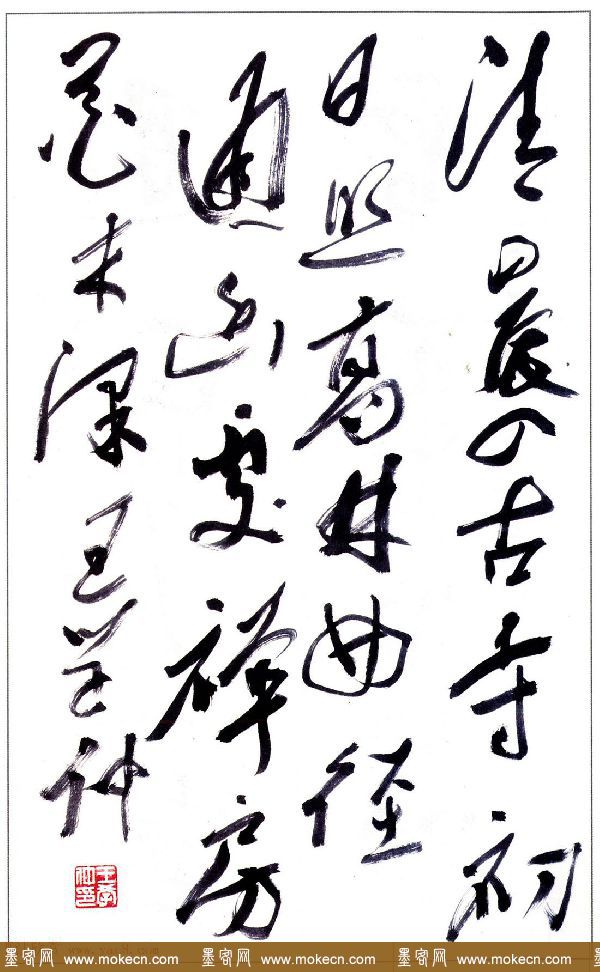 清晨入古寺初
日照高林曲径
通幽處禅房
花木深王学仲
墨客网 www.mokecn.com 墨客网 www.mokecn.com 墨客网 www.mokecn.com 墨客网